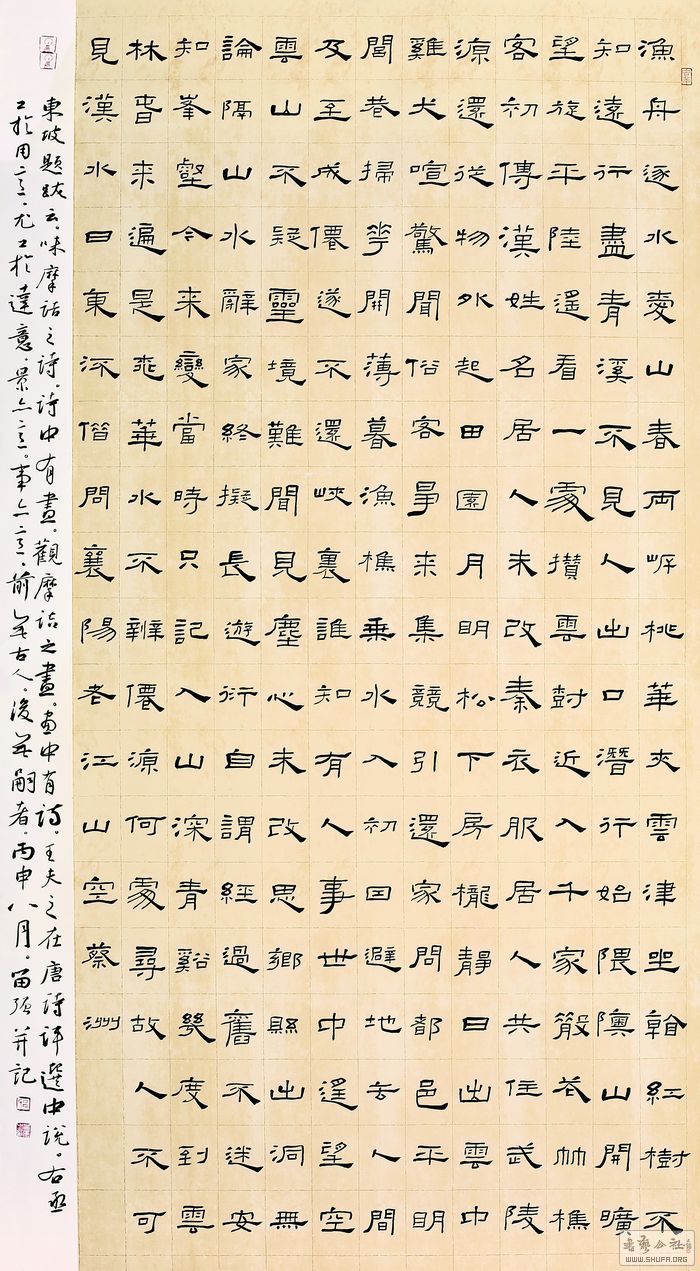 漁舟逐水愛山春兩岸桃華夾雲津坐看紅樹不
知遠行盡青溪不見人出口潛行始隈隩山開曠
望旋平陸遙看一處攢雲樹近入千家散花竹樵
客初傳漢姓名居人未改秦衣服居人共住武陵
源還從物外起田園月明松下房櫳靜日出雲中
雞犬喧驚聞俗客爭來集競引還家問都邑平明
閭巷掃花開薄暮漁樵乘水入初因避地去人間
及至成僊遂不還峽裏誰知有人事世中遙望空
雲山不疑靈境難聞見塵心未改思鄉縣出洞無
論隔山水辭家終擬長遊衍自謂經過舊不迷安
知峯壑今來變當時只記入山深青谿幾度到雲
林春來遍是桃華水不辨僊源何處尋故人不可
見漢水日東流借問襄陽老江山空蔡洲
東坡題跋云。味摩詰之詩。詩中有畫。觀摩詰之畫。畫中有詩。王夫之在唐詩評選中說。右丞
工於用意。尤工於達意。景亦意。事亦意。前無古人。後無嗣者。丙申八月。并記
書藝公社
WWW.SHUFA.ORG